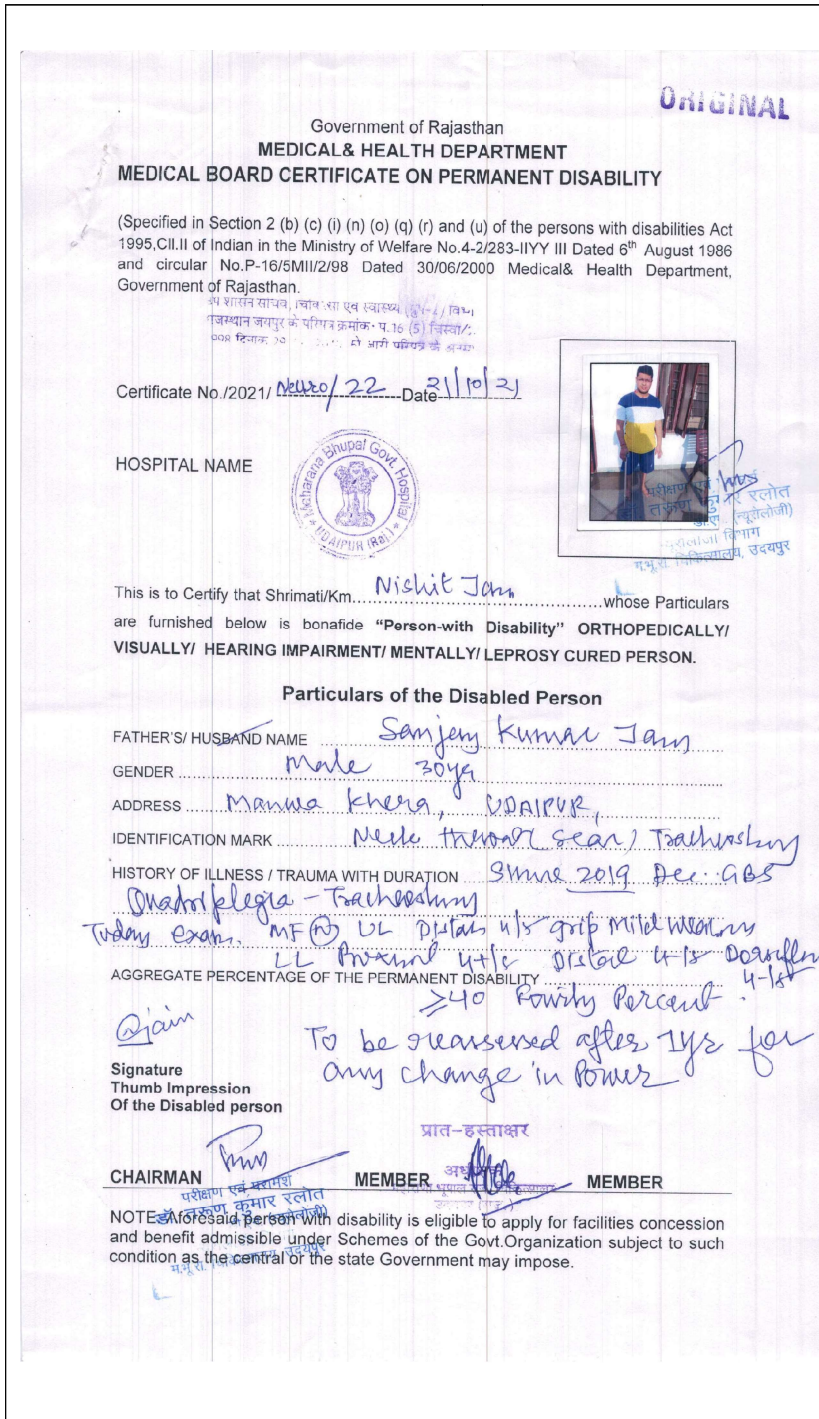 ORIGINAL
Government of Rajasthan
MEDICAL& HEALTH DEPARTMENT
MEDICAL BOARD CERTIFICATE ON PERMANENT DISABILITY
(Specified in Section 2 (b) (c) (i) (n) (o) (q) (r) and (u) of the persons with disabilities Act
1995,CII.II of Indian in the Ministry of Welfare No.4-2/283-IIYY III Dated 6th August 1986
and circular No.P-16/5MII/2/98 Dated 30/06/2000 Medical& Health Department,
Government of Rajasthan.
शासन सचिव, एवं स्वास्थ्य
राजस्थान जयपुर के परिपत्र क्रमांक प.16 (5)
दिनांक जारी परिपत्र के
Certificate No./2021/ Neuro/22 Date 21/10/21
HOSPITAL NAME
Maharana Bhupal Govt. Hospital
UDAIPUR (Raj.)
परीक्षण एवं
तरूण कुमार रलोत
(न्यूरोलोजी)
विभाग
चिकित्सालय, उदयपुर
This is to Certify that Shrimati/Km. Nishit Jain whose Particulars
are furnished below is bonafide "Person-with Disability" ORTHOPEDICALLY/
VISUALLY/ HEARING IMPAIRMENT/ MENTALLY/ LEPROSY CURED PERSON.
Particulars of the Disabled Person
FATHER'S/ HUSBAND NAME Sanjay Kumar Jain
GENDER Male 30yr
ADDRESS Manwa Khera, UDAIPUR,
IDENTIFICATION MARK throat (scar) Tracheostomy
HISTORY OF ILLNESS / TRAUMA WITH DURATION Since 2019 Dec. GBS
Quadriplegia - Tracheostomy
Today exam. MF (N) UL Distal 4/5 grip Mild
LL Proximal 4+/5 Distal 4-/5
AGGREGATE PERCENTAGE OF THE PERMANENT DISABILITY 4-/5
≥40 Fourty Percent.
To be reassessed after 1yr for
any change in Power
Signature
Thumb Impression
Of the Disabled person
प्रति-हस्ताक्षर
CHAIRMAN MEMBER MEMBER
परीक्षण एवं परामर्श
डॉ. तरूण कुमार रलोत
NOTE: Aforesaid person with disability is eligible to apply for facilities concession
and benefit admissible under Schemes of the Govt.Organization subject to such
condition as the central or the state Government may impose.